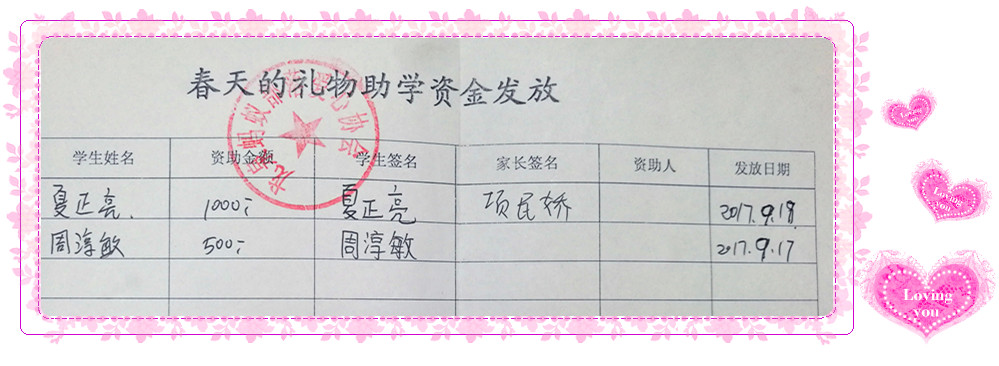 春天的礼物助学资金发放
龙泉蚂蚁部落爱心协会
学生姓名 资助金额 学生签名 家长签名 资助人 发放日期
夏正亮. 1000; 夏正亮 项民娇 2017.9.18
周淳敏 500; 周淳敏 2017.9.17
Loving you
Loving
you
Loving
you